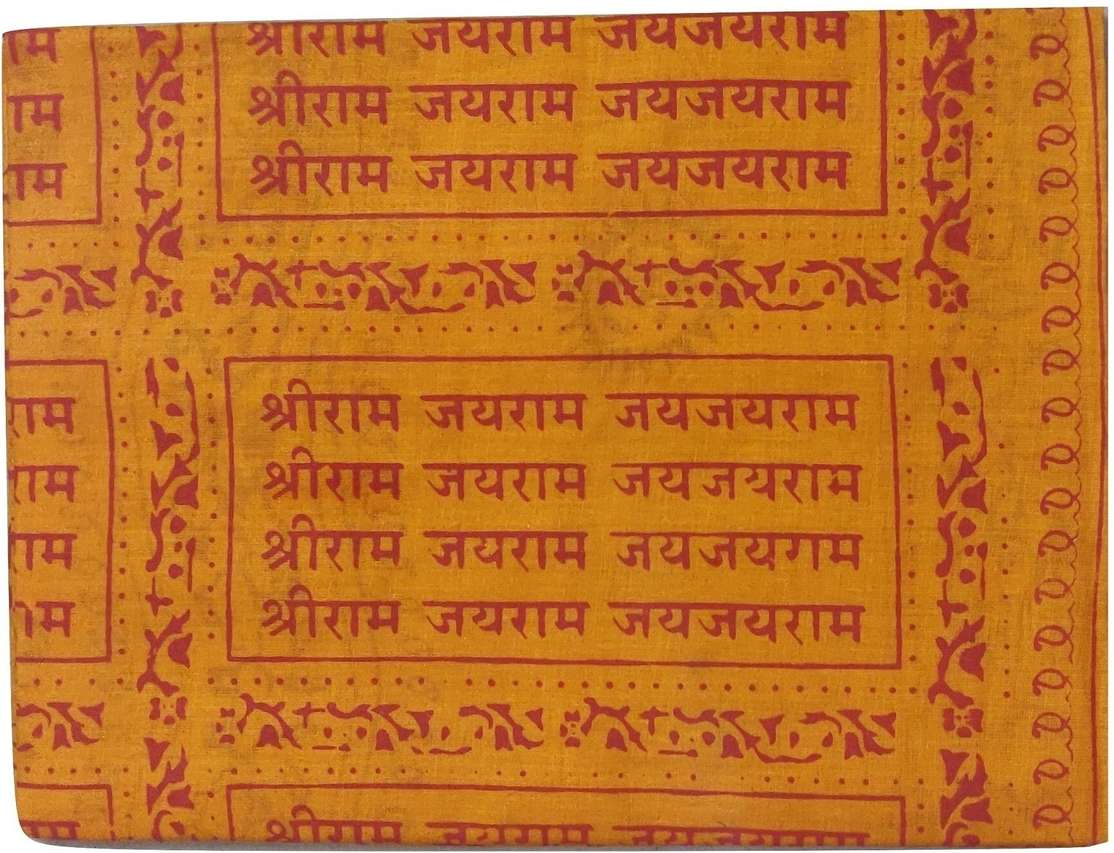 राम श्रीराम जयराम जयजयराम
राम श्रीराम जयराम जयजयराम
राम श्रीराम जयराम जयजयराम
राम श्रीराम जयराम जयजयराम
राम श्रीराम जयराम जयजयराम
राम श्रीराम जयराम जयजयराम
राम श्रीराम जयराम जयजयराम
श्रीराम जयराम जयजयराम